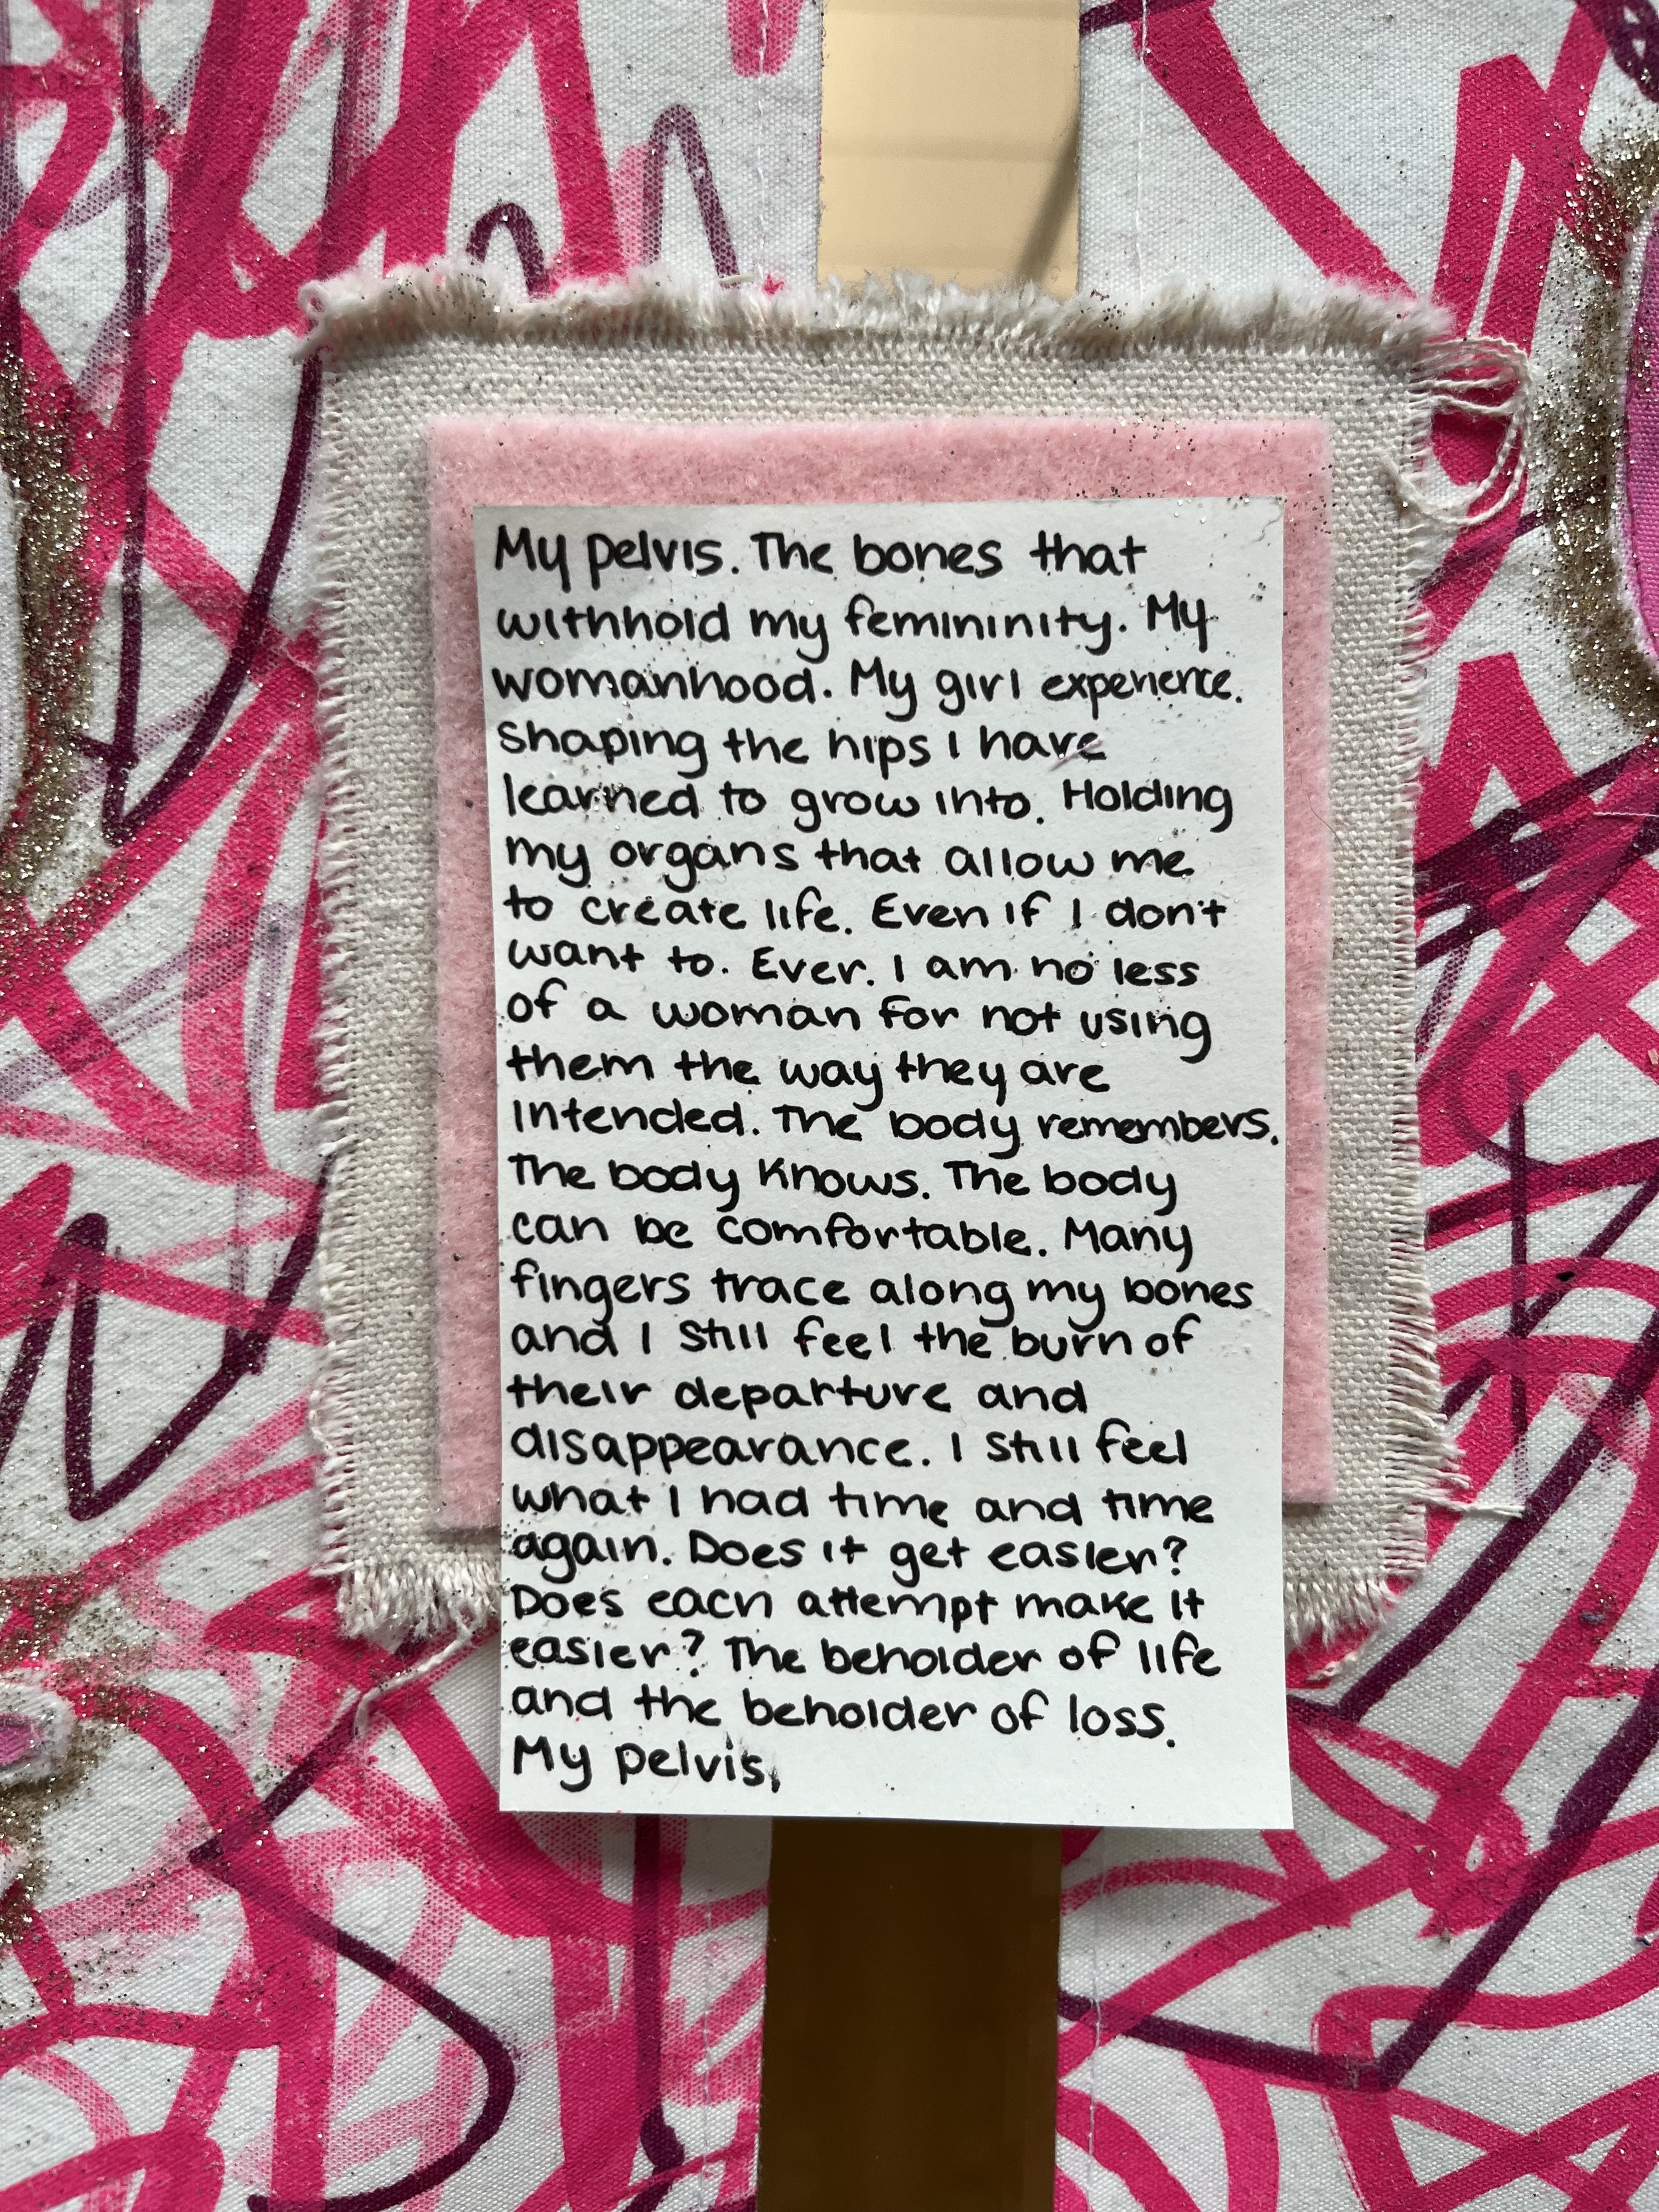 My pelvis. The bones that
withhold my femininity. My
womanhood. My girl experience.
Shaping the hips I have
learned to grow into. Holding
my organs that allow me
to create life. Even if I don't
want to. Ever. I am no less
of a woman for not using
them the way they are
intended. The body remembers.
The body knows. The body
can be comfortable. Many
fingers trace along my bones
and I still feel the burn of
their departure and
disappearance. I still feel
what I had time and time
again. Does it get easier?
Does each attempt make it
easier? The beholder of life
and the beholder of loss.
My pelvis.